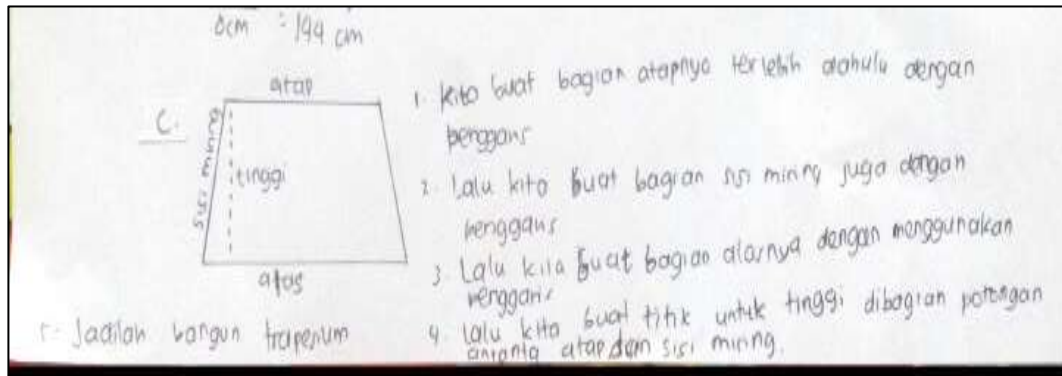 0cm = 144 cm
C.
atap
sisi miring
tinggi
atas
1. Kita buat bagian atapnya terlebih dahulu dengan
penggaris
2. Lalu kita buat bagian sisi miring juga dengan
penggaris
3. Lalu kita buat bagian alasnya dengan menggunakan
penggaris
4. Lalu kita buat titik untuk tinggi dibagian potongan
antanta atap dan sisi miring.
5. Jadilah bangun trapesium